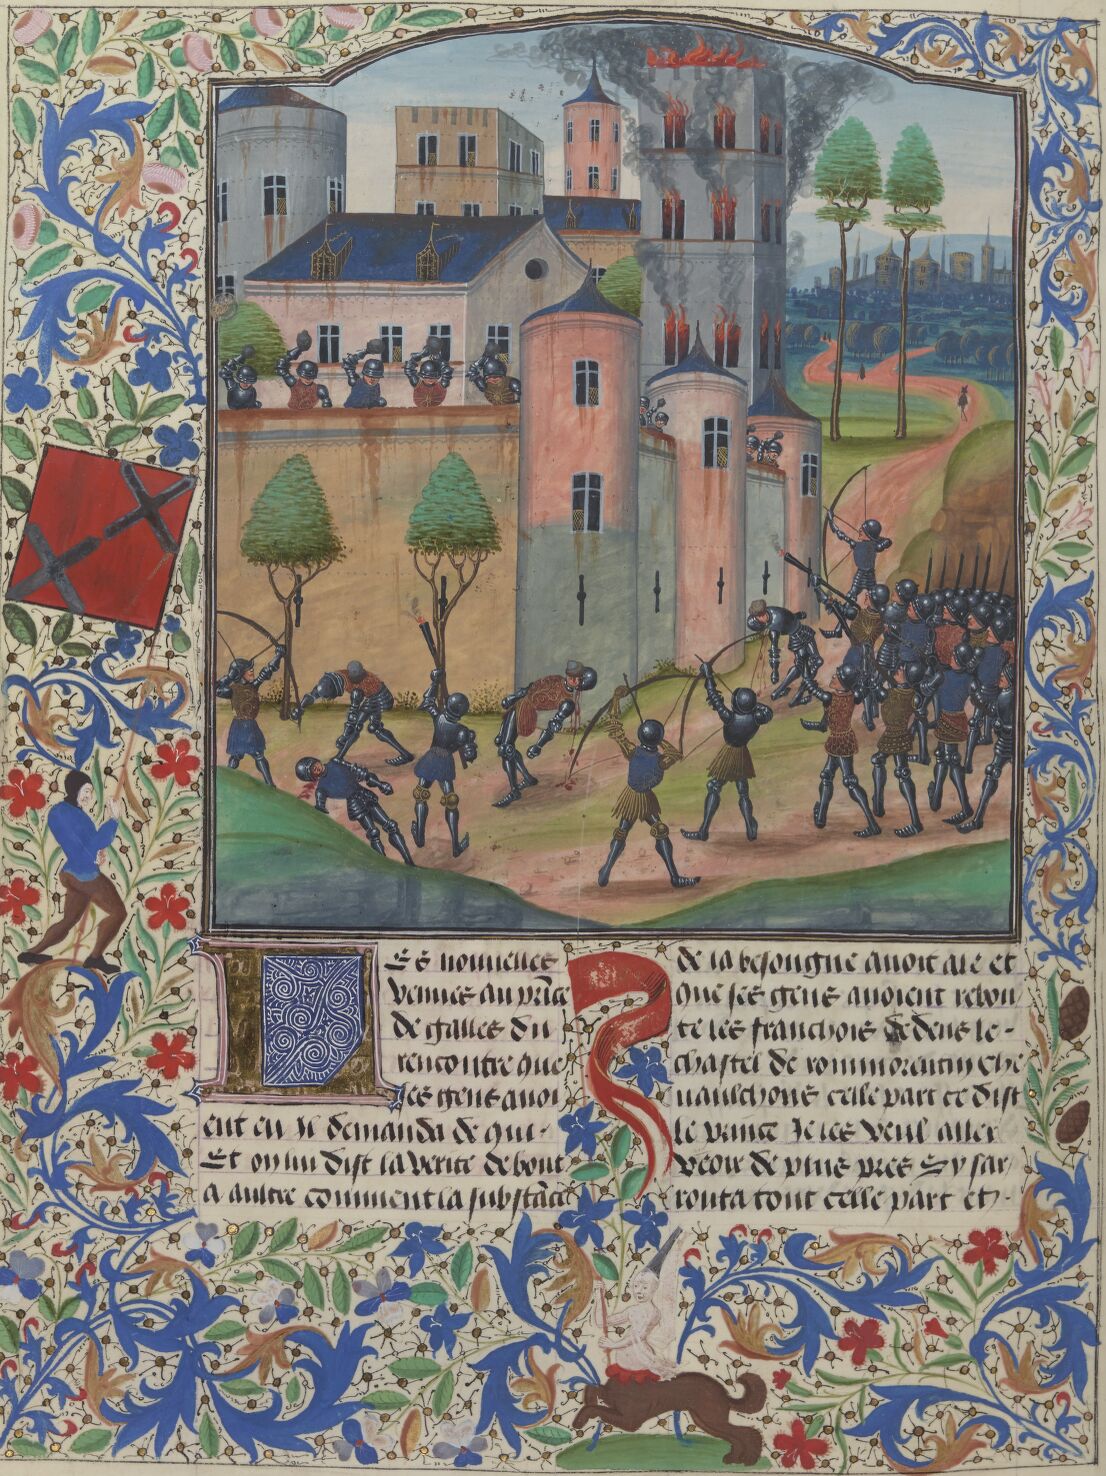 Es nouuelles
venues au prīce
de galles du
rencontre que
ses gens auoi
ent eu Il demanda de qui
Et on lui dist la verite de bout
a aultre comment la substāce
de la besongne auoit ale et
que ses gens auoient rebou
te les franchois dedens le
chastel de rommorentin Che
uaulchons celle part ce dist
le prince Je les veul aller
veoir de plus pres Sy sar
routa tout celle part et